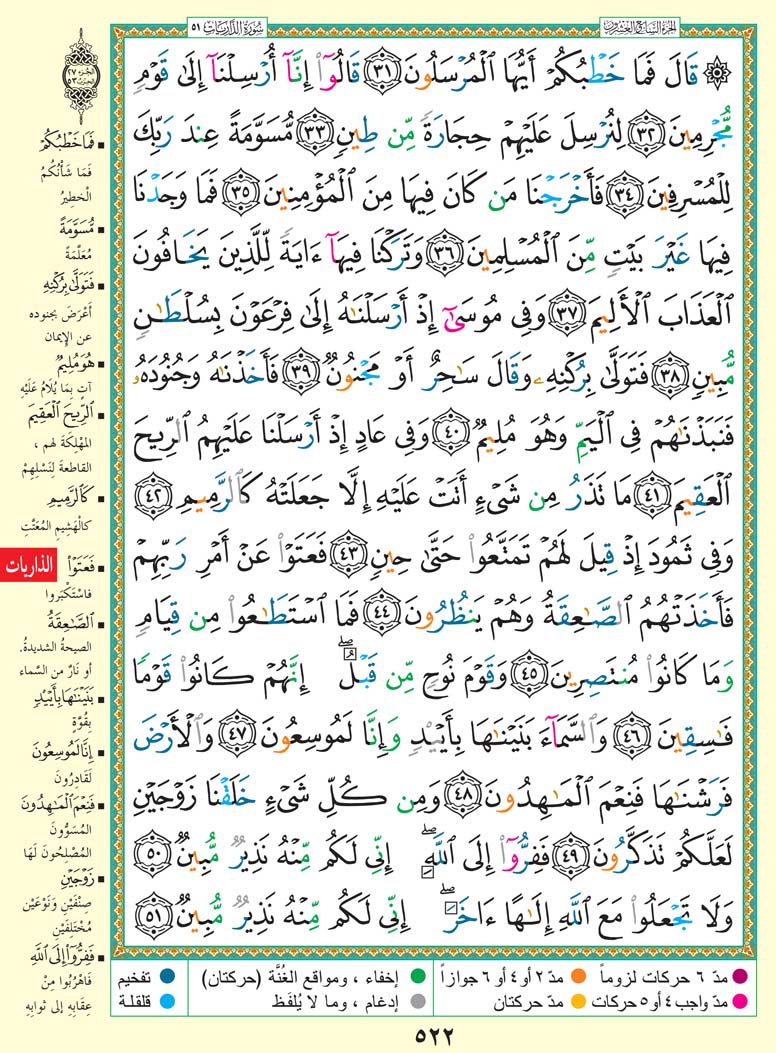 الجزء السابع والعشرون
سورة الذاريات ٥١
الجزء ٢٧
الحزب ٥٣
۞ قَالَ فَمَا خَطْبُكُمْ أَيُّهَا الْمُرْسَلُونَ ٣١ قَالُوٓا۟ إِنَّآ أُرْسِلْنَآ إِلَىٰ قَوْمٍ
مُّجْرِمِينَ ٣٢ لِنُرْسِلَ عَلَيْهِمْ حِجَارَةً مِّن طِينٍ ٣٣ مُّسَوَّمَةً عِندَ رَبِّكَ
لِلْمُسْرِفِينَ ٣٤ فَأَخْرَجْنَا مَن كَانَ فِيهَا مِنَ الْمُؤْمِنِينَ ٣٥ فَمَا وَجَدْنَا
فِيهَا غَيْرَ بَيْتٍ مِّنَ الْمُسْلِمِينَ ٣٦ وَتَرَكْنَا فِيهَآ ءَايَةً لِّلَّذِينَ يَخَافُونَ
الْعَذَابَ الْأَلِيمَ ٣٧ وَفِى مُوسَىٰٓ إِذْ أَرْسَلْنَٰهُ إِلَىٰ فِرْعَوْنَ بِسُلْطَٰنٍ
مُّبِينٍ ٣٨ فَتَوَلَّىٰ بِرُكْنِهِۦ وَقَالَ سَٰحِرٌ أَوْ مَجْنُونٌ ٣٩ فَأَخَذْنَٰهُ وَجُنُودَهُۥ
فَنَبَذْنَٰهُمْ فِى الْيَمِّ وَهُوَ مُلِيمٌ ٤٠ وَفِى عَادٍ إِذْ أَرْسَلْنَا عَلَيْهِمُ الرِّيحَ
الْعَقِيمَ ٤١ مَا تَذَرُ مِن شَىْءٍ أَتَتْ عَلَيْهِ إِلَّا جَعَلَتْهُ كَالرَّمِيمِ ٤٢
وَفِى ثَمُودَ إِذْ قِيلَ لَهُمْ تَمَتَّعُوا۟ حَتَّىٰ حِينٍ ٤٣ فَعَتَوْا۟ عَنْ أَمْرِ رَبِّهِمْ
فَأَخَذَتْهُمُ الصَّٰعِقَةُ وَهُمْ يَنظُرُونَ ٤٤ فَمَا اسْتَطَٰعُوا۟ مِن قِيَامٍ
وَمَا كَانُوا۟ مُنتَصِرِينَ ٤٥ وَقَوْمَ نُوحٍ مِّن قَبْلُ ۖ إِنَّهُمْ كَانُوا۟ قَوْمًا
فَٰسِقِينَ ٤٦ وَالسَّمَآءَ بَنَيْنَٰهَا بِأَيْي۟دٍ وَإِنَّا لَمُوسِعُونَ ٤٧ وَالْأَرْضَ
فَرَشْنَٰهَا فَنِعْمَ الْمَٰهِدُونَ ٤٨ وَمِن كُلِّ شَىْءٍ خَلَقْنَا زَوْجَيْنِ
لَعَلَّكُمْ تَذَكَّرُونَ ٤٩ فَفِرُّوٓا۟ إِلَى اللَّهِ ۖ إِنِّى لَكُم مِّنْهُ نَذِيرٌ مُّبِينٌ ٥٠
وَلَا تَجْعَلُوا۟ مَعَ اللَّهِ إِلَٰهًا ءَاخَرَ ۖ إِنِّى لَكُم مِّنْهُ نَذِيرٌ مُّبِينٌ ٥١
▪ فَمَا خَطْبُكُمْ
فَمَا شَأْنُكُمُ
الْخَطِيرُ
▪ مُّسَوَّمَةً
مُعَلَّمَةً
▪ فَتَوَلَّىٰ بِرُكْنِهِ
أَعْرَضَ بجنوده
عن الإيمان
▪ هُوَ مُلِيمٌ
آتٍ بِمَا يُلَامُ عَلَيْهِ
▪ الرِّيحَ الْعَقِيمَ
المُهْلِكَةَ لهم ،
القاطعةَ لِنَسْلِهِمْ
▪ كَالرَّمِيمِ
كالْهَشِيمِ المُفَتَّتِ
▪ فَعَتَوْا۟
فاسْتَكْبَروا
▪ الصَّٰعِقَةُ
الصيحةُ الشديدةُ.
أو نَارٌ من السَّماء
▪ بَنَيْنَٰهَا بِأَيْي۟دٍ
بِقُوَّةٍ
▪ إِنَّا لَمُوسِعُونَ
لَقَادِرُونَ
▪ فَنِعْمَ الْمَٰهِدُونَ
المُسَوُّونَ
المُصْلِحُونَ لَهَا
▪ زَوْجَيْنِ
صِنْفَيْنِ وَنَوْعَيْنِ
مُخْتَلِفَيْنِ
▪ فَفِرُّوٓا۟ إِلَى اللَّهِ
فَاهْرُبُوا مِنْ
عِقَابِهِ إلى ثوابِهِ
الذاريات
مدّ ٦ حركات لزوماً مدّ ٢ أو ٤ أو ٦ جوازاً إخفاء ، ومواقع الغُنَّة (حركتان) تفخيم
مدّ واجب ٤ أو ٥ حركات مدّ حركتان إدغام ، وما لا يُلفَظ قلقلة
٥٢٢